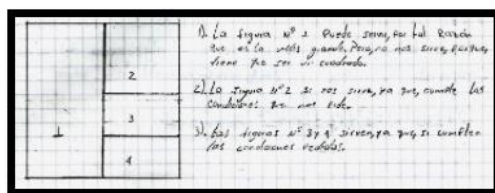 1). La figura Nº 1 Puede servir, por tal razón
que es la más grande. Pero, no nos sirve, porque,
tiene que ser un cuadrado.
2). La figura Nº 2 si nos sirve, ya que, cumple las
condiciones que nos pide.
3). Las figuras Nº 3 y 4 sirven, ya que, si cumplen
las condiciones pedidas.
2
3
1
4